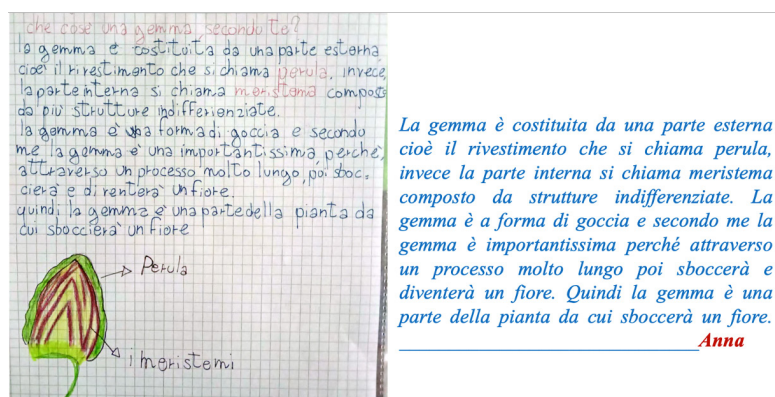 che cosè una gemma, secondo te?
la gemma è costituita da una parte esterna
cioè il rivestimento che si chiama perula, invece,
la parte interna si chiama meristema composto
da più strutture indifferienziate.
la gemma è una forma di goccia e secondo
me la gemma è una importantissima, perché,
attraverso un processo molto lungo, poi sboc.
cierà e diventerà un fiore.
quindi la gemma è una parte della pianta da
cui sboccierà un fiore
Perula
i meristemi
La gemma è costituita da una parte esterna
cioè il rivestimento che si chiama perula,
invece la parte interna si chiama meristema
composto da strutture indifferenziate. La
gemma è a forma di goccia e secondo me la
gemma è importantissima perché attraverso
un processo molto lungo poi sboccerà e
diventerà un fiore. Quindi la gemma è una
parte della pianta da cui sboccerà un fiore.
Anna